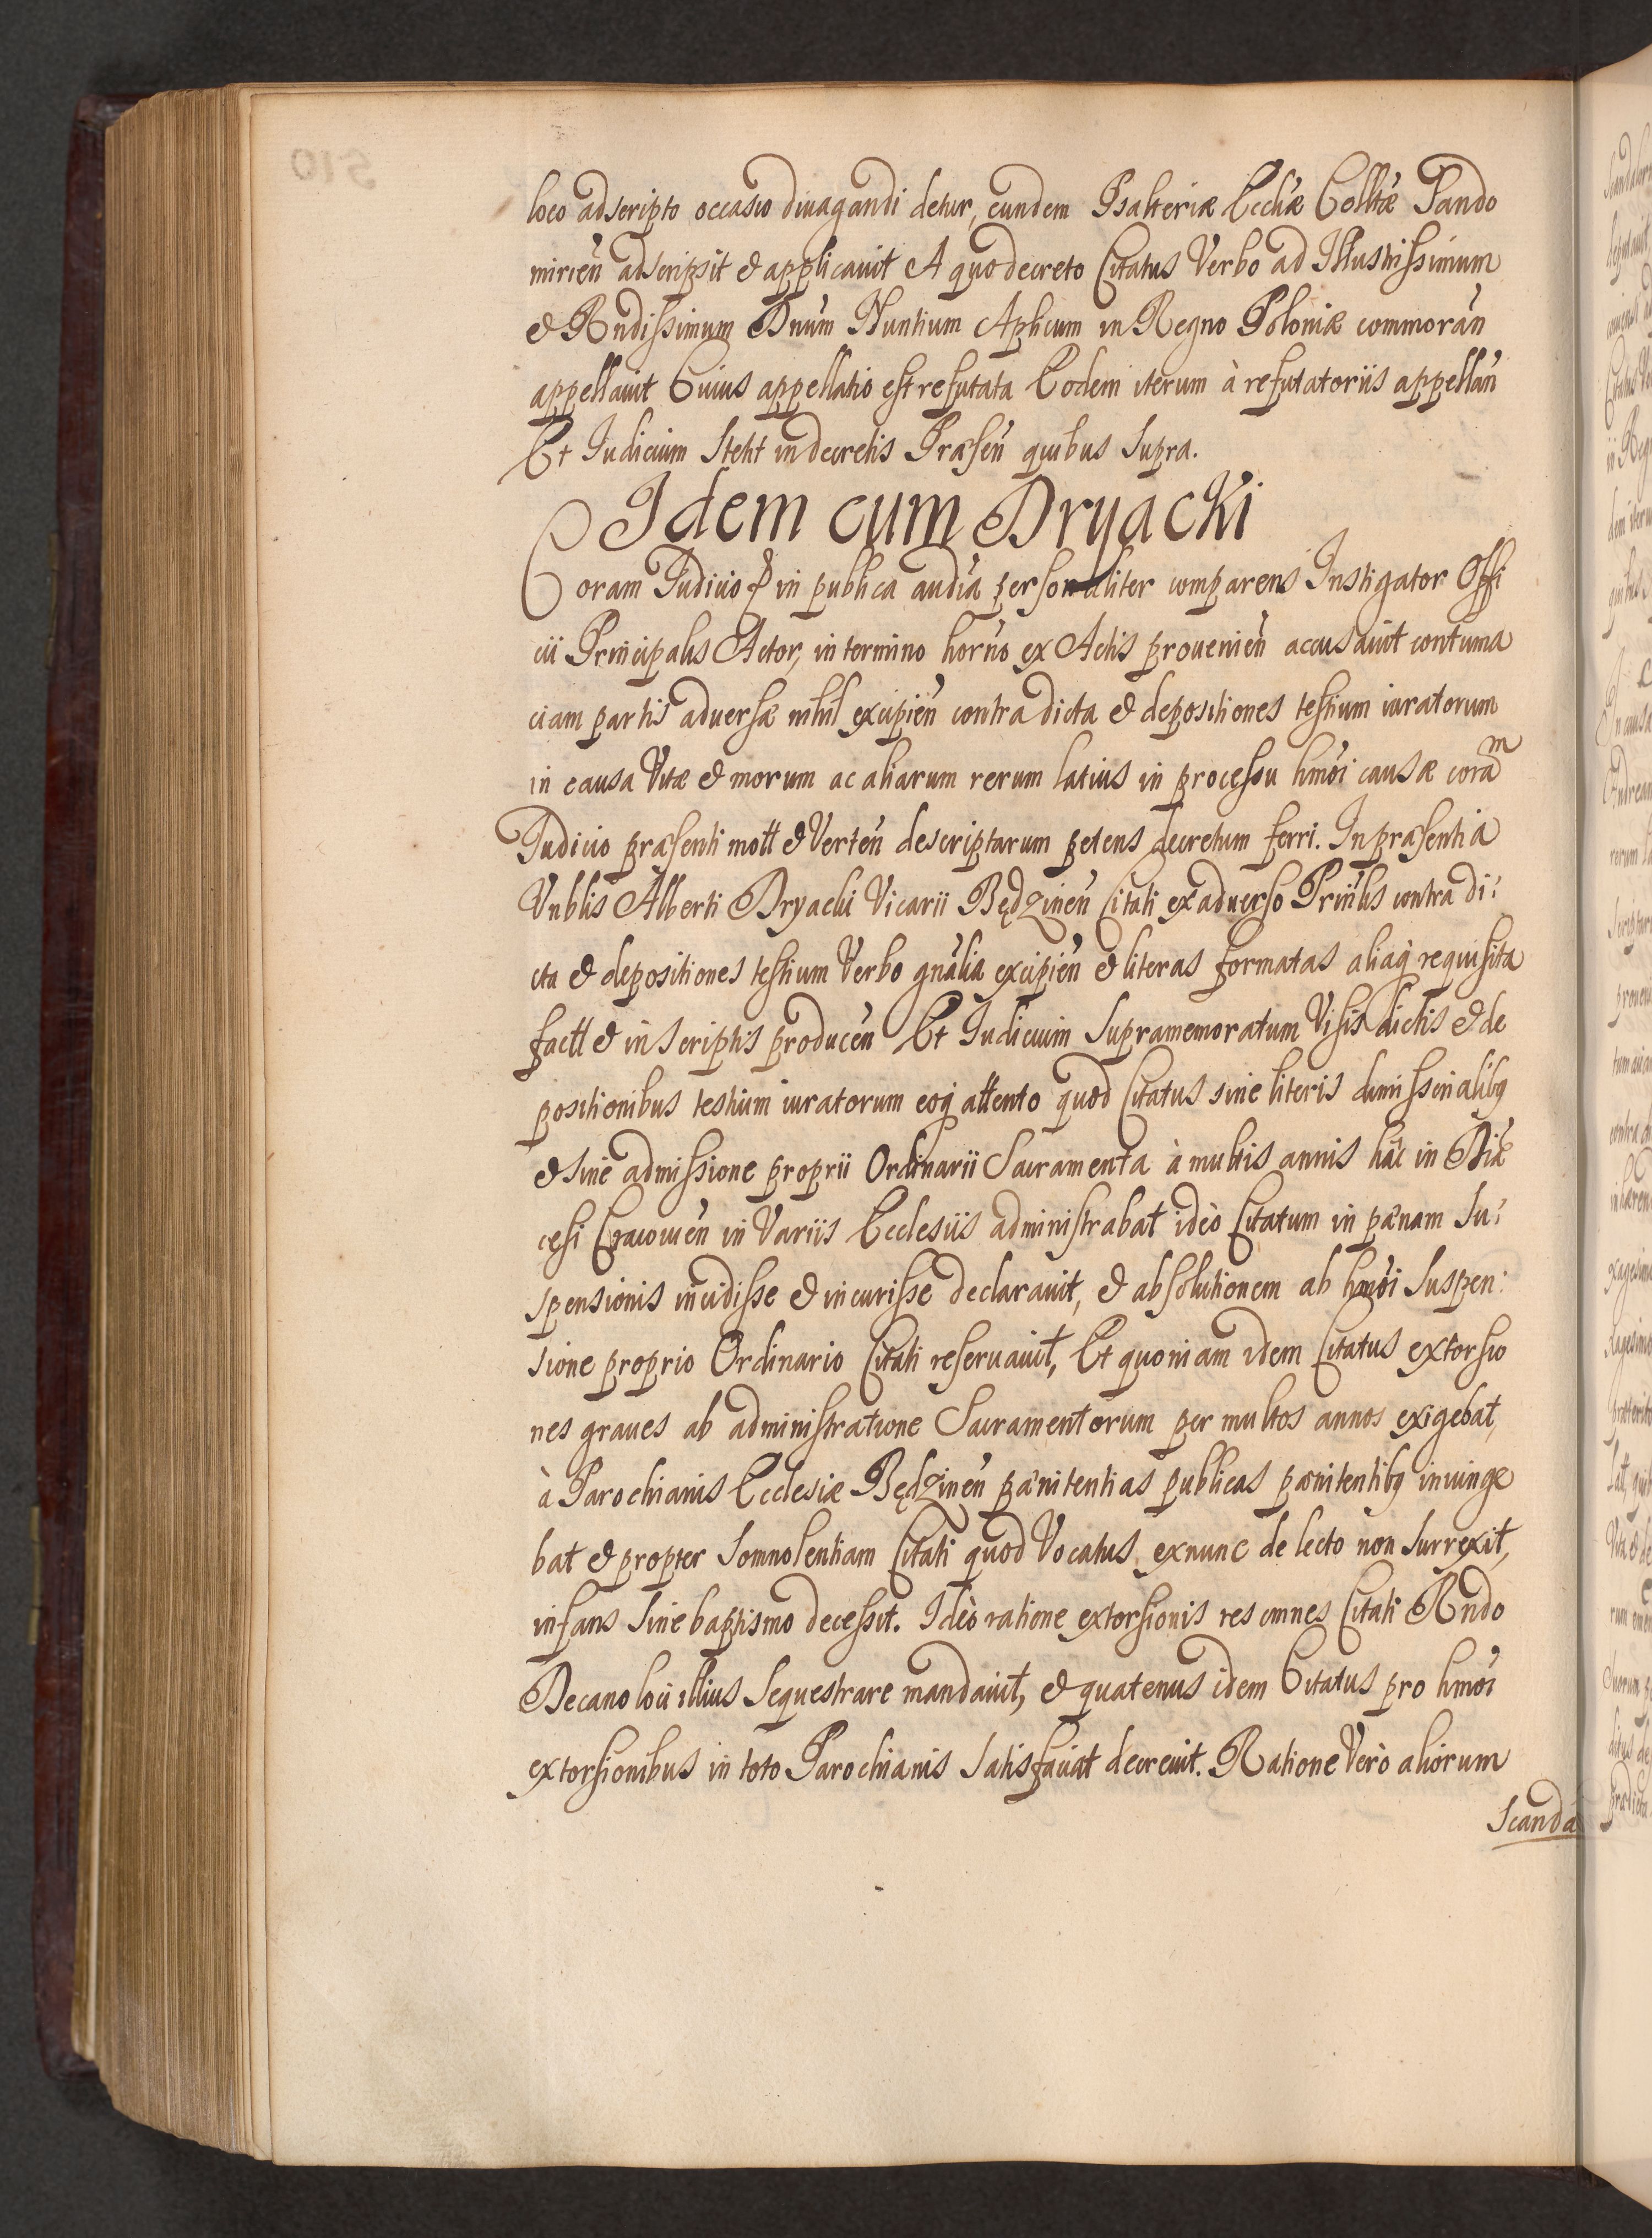 loco adscripto occasio diuagandi detur, eundem Psalteriæ Eccliæ Colltæ Sando
mirieñ adscripsit & applicauit A quo decreto Citatus Verbo ad Illustrissimum
& Rndissimum Dnum Nuntium Aplicum in Regno Poloniæ commorañ
appellauit Cuius appellatio est refutata Eodem iterum à refutatoriis appellañ
Et Iudicium Stetit in decretis Præseñ quibus Supra.
Idem cum Dryacki
Coram Iudicio & in publica audia personaliter comparens Instigator Offi
cii Principalis Actor, in termino horno ex Actis prouenieñ accusauit contuma
ciam partis aduersæ nihil excipieñ contra dicta & depositiones testium iuratorum
in causa Vitæ & morum ac aliarum rerum latius in processu hmoi causæ coram
Iudicio præsenti mott & Verteñ descriptarum petens decretum ferri. In præsentia
Vnblis Alberti Dryacki Vicarii Będzineñ Citati ex aduerso Prinlis contra di:
cta & depositiones testium Verbo gnalia excipieñ & literas formatas aliaq requisita
factt & in Scriptis produceñ Et Iudicium Supramemoratum Visis dictis & de
positionibus testium iuratorum eoq attento quod Citatus sine literis dimissorialibq
& sine admissione proprii Ordinarii Sacramenta à multis annis hac in Diæ
cesi Cracouieñ in Variis Ecclesiis administrabat ideò Citatum in pænam Su:
spensionis incidisse & incurisse declarauit, & absolutionem ab hmoi Suspen:
sione proprio Ordinario Citati reseruauit, Et quoniam idem Citatus extorsio
nes graues ab administratione Sacramentorum per multos annos exigebat,
à Parochianis Ecclesiæ Będzineñ pænitentias publicas pænitentibq iniunge
bat & propter Somnolentiam Citati quod Vocatus exnunc de lecto non Surrexit,
infans Sine baptismo decessit. Ideò ratione extorsionis res omnes Citati Rndo
Decano loci illius Sequestrare mandauit, & quatenus idem Citatus pro hmoi
extorsionibus in toto Parochianis Satisfaciat decreuit. Ratione Verò aliorum
Scanda